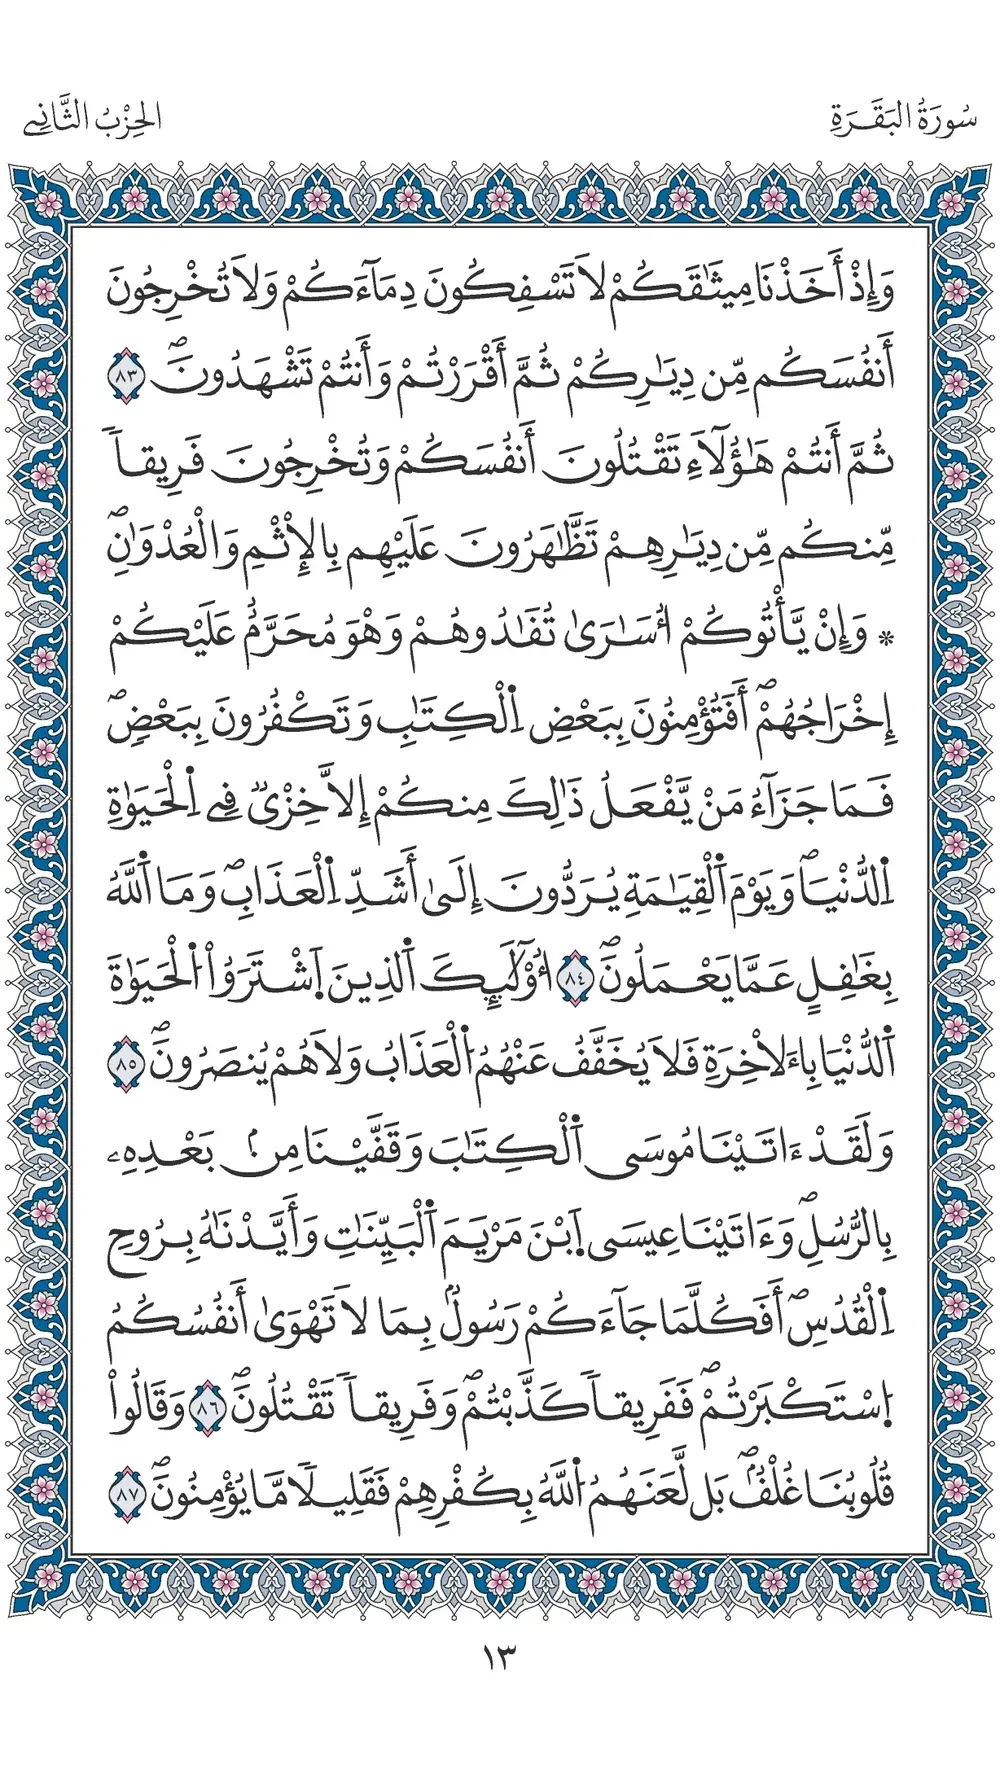 سُورَةُ البَقَرَةِ
الحِزْبُ الثَّانِي
وَإِذْ أَخَذْنَا مِيثَٰقَكُمْ لَا تَسْفِكُونَ دِمَآءَكُمْ وَلَا تُخْرِجُونَ
أَنفُسَكُم مِّن دِيَٰرِكُمْ ثُمَّ أَقْرَرْتُمْ وَأَنتُمْ تَشْهَدُونَۖ ٨٣
ثُمَّ أَنتُمْ هَٰؤُلَآءِ تَقْتُلُونَ أَنفُسَكُمْ وَتُخْرِجُونَ فَرِيقاٗ
مِّنكُم مِّن دِيَٰرِهِمْ تَظَّٰهَرُونَ عَلَيْهِم بِالِاثْمِ وَالْعُدْوَٰنِۖ
* وَإِنْ يَّأْتُوكُمْ أُسَٰرَىٰ تُفَٰدُوهُمْ وَهْوَ مُحَرَّمٌ عَلَيْكُمْ
إِخْرَاجُهُمْۖ أَفَتُؤْمِنُونَ بِبَعْضِ اِ۬لْكِتَٰبِ وَتَكْفُرُونَ بِبَعْضٖۖ
فَمَا جَزَآءُ مَنْ يَّفْعَلُ ذَٰلِكَ مِنكُمْ إِلَّا خِزْيٞ فِي اِ۬لْحَيَوٰةِ
اِ۬لدُّنْيَاۖ وَيَوْمَ اَ۬لْقِيَٰمَةِ يُرَدُّونَ إِلَىٰ أَشَدِّ اِ۬لْعَذَابِۖ وَمَا اَ۬للَّهُ
بِغَٰفِلٍ عَمَّا يَعْمَلُونَۖ ٨٤ أُوْلَٰٓئِكَ اَ۬لذِينَ اَ۪شْتَرَوُاْ اُ۬لْحَيَوٰةَ
اَ۬لدُّنْيَا بِاءَلاخِرَةِ فَلَا يُخَفَّفُ عَنْهُمُ اُ۬لْعَذَابُ وَلَا هُمْ يُنصَرُونَۖ ٨٥
وَلَقَدْ ءَاتَيْنَا مُوسَى اَ۬لْكِتَٰبَ وَقَفَّيْنَا مِنۢ بَعْدِهِۦ
بِالرُّسُلِۖ وَءَاتَيْنَا عِيسَى اَ۪بْنَ مَرْيَمَ اَ۬لْبَيِّنَٰتِ وَأَيَّدْنَٰهُ بِرُوحِ
اِ۬لْقُدُسِۖ أَفَكُلَّمَا جَآءَكُمْ رَسُولُۢ بِمَا لَا تَهْوَىٰ أَنفُسُكُمُ
اُ۪سْتَكْبَرْتُمْۖ فَفَرِيقاٗ كَذَّبْتُمْۖ وَفَرِيقاٗ تَقْتُلُونَۖ ٨٦ وَقَالُواْ
قُلُوبُنَا غُلْفُۢۖ بَل لَّعَنَهُمُ اُ۬للَّهُ بِكُفْرِهِمْ فَقَلِيلاٗ مَّا يُؤْمِنُونَۖ ٨٧
١٣